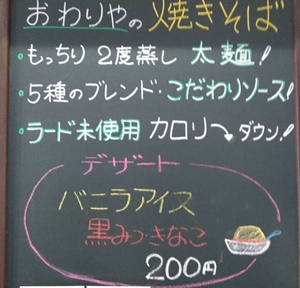 おわりやの 焼きそば
・もっちり 2度蒸し 太麺!
・5種のブレンド・こだわりソース!
・ラード未使用 カロリー↘ダウン!
デザート
バニラアイス
黒みつ・きなこ
200円